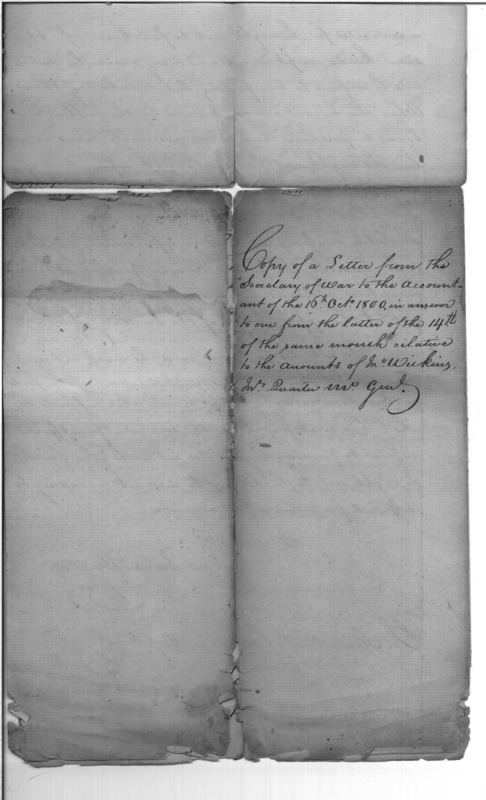 Copy of a Letter from the
Secretary of War to the Account-
ant of the 16th Octr. 1800, in answer
to one from the latter of the 14th
of the same month relative
to the Accounts of Jno. Wilkins,
Jnr. Quarter Mr. Genl.